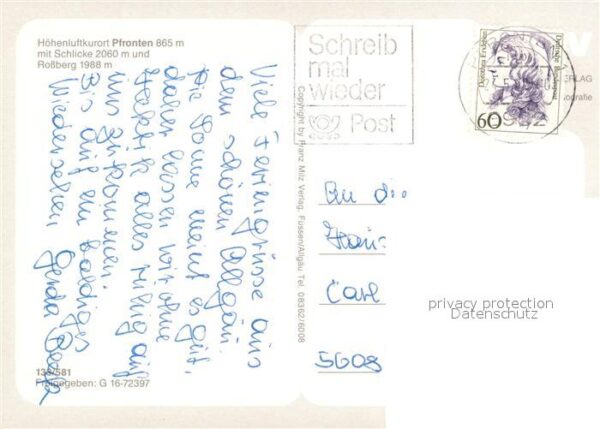 Höhenluftkurort Pfronten 865 m
mit Schlicke 2060 m und
Roßberg 1988 m
Viele Feriengrüsse aus
dem schönen Allgäu.
Die Sonne meint es gut,
daher lassen wir ohne
alles ruhig auf
uns zukommen.
Bis auf ein baldiges
Wiedersehen
Gerda
136/581
Freigegeben: G 16-72397
Copyright by Franz Milz Verlag, Füssen/Allgäu Tel. 08362/6008
Schreib
mal
wieder
Post
Dorothea Erxleben
Deutsche Bundespost
60
ERLAG
ografie
An die
Carl
5608
privacy protection
Datenschutz